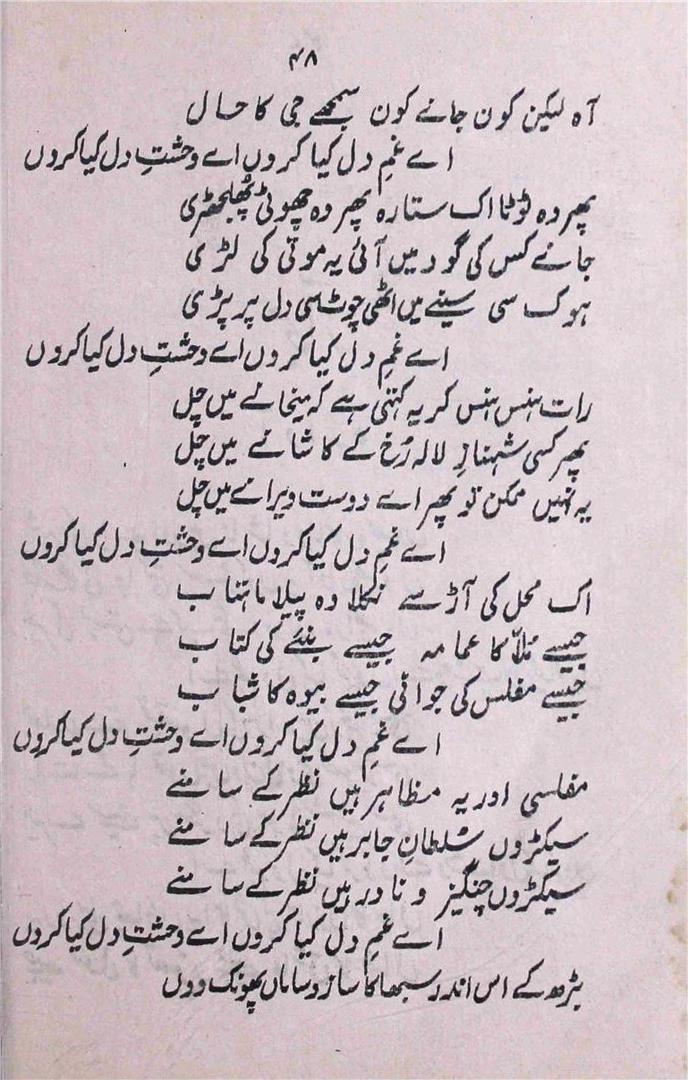 ۴۸
آہ لیکن کون جانے کون سمجھے جی کا حال
اے غمِ دل کیا کروں اے وحشتِ دل کیا کروں
پھر وہ ٹوٹا اک ستارہ پھر وہ چھوٹی پُھلجھڑی
جانے کس کی گود میں آئی یہ موتی کی لڑی
ہوک سی سینے میں اٹھی چوٹ سی دل پر پڑی
اے غمِ دل کیا کروں اے وحشتِ دل کیا کروں
رات ہنس ہنس کر یہ کہتی ہے کہ میخانے میں چل
پھر کسی شہنازِ لالہ رُخ کے کاشانے میں چل
یہ نہیں ممکن تو پھر اے دوست ویرانے میں چل
اے غمِ دل کیا کروں اے وحشتِ دل کیا کروں
اک محل کی آڑ سے نکلا وہ پیلا ماہتاب
جیسے مُلّا کا عمامہ جیسے بنئے کی کتاب
جیسے مفلس کی جوانی جیسے بیوہ کا شباب
اے غمِ دل کیا کروں اے وحشتِ دل کیا کروں
مفلسی اور یہ مظاہر ہیں نظر کے سامنے
سیکڑوں سُلطانِ جابر ہیں نظر کے سامنے
سیکڑوں چنگیز و نادر ہیں نظر کے سامنے
اے غمِ دل کیا کروں اے وحشتِ دل کیا کروں
بڑھ کے اس اندر سبھا کا ساز و ساماں پھونک دوں